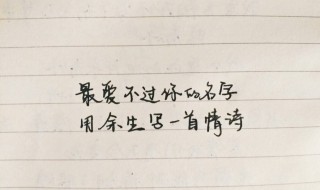 最爱不过你的名字
用余生写一首情诗